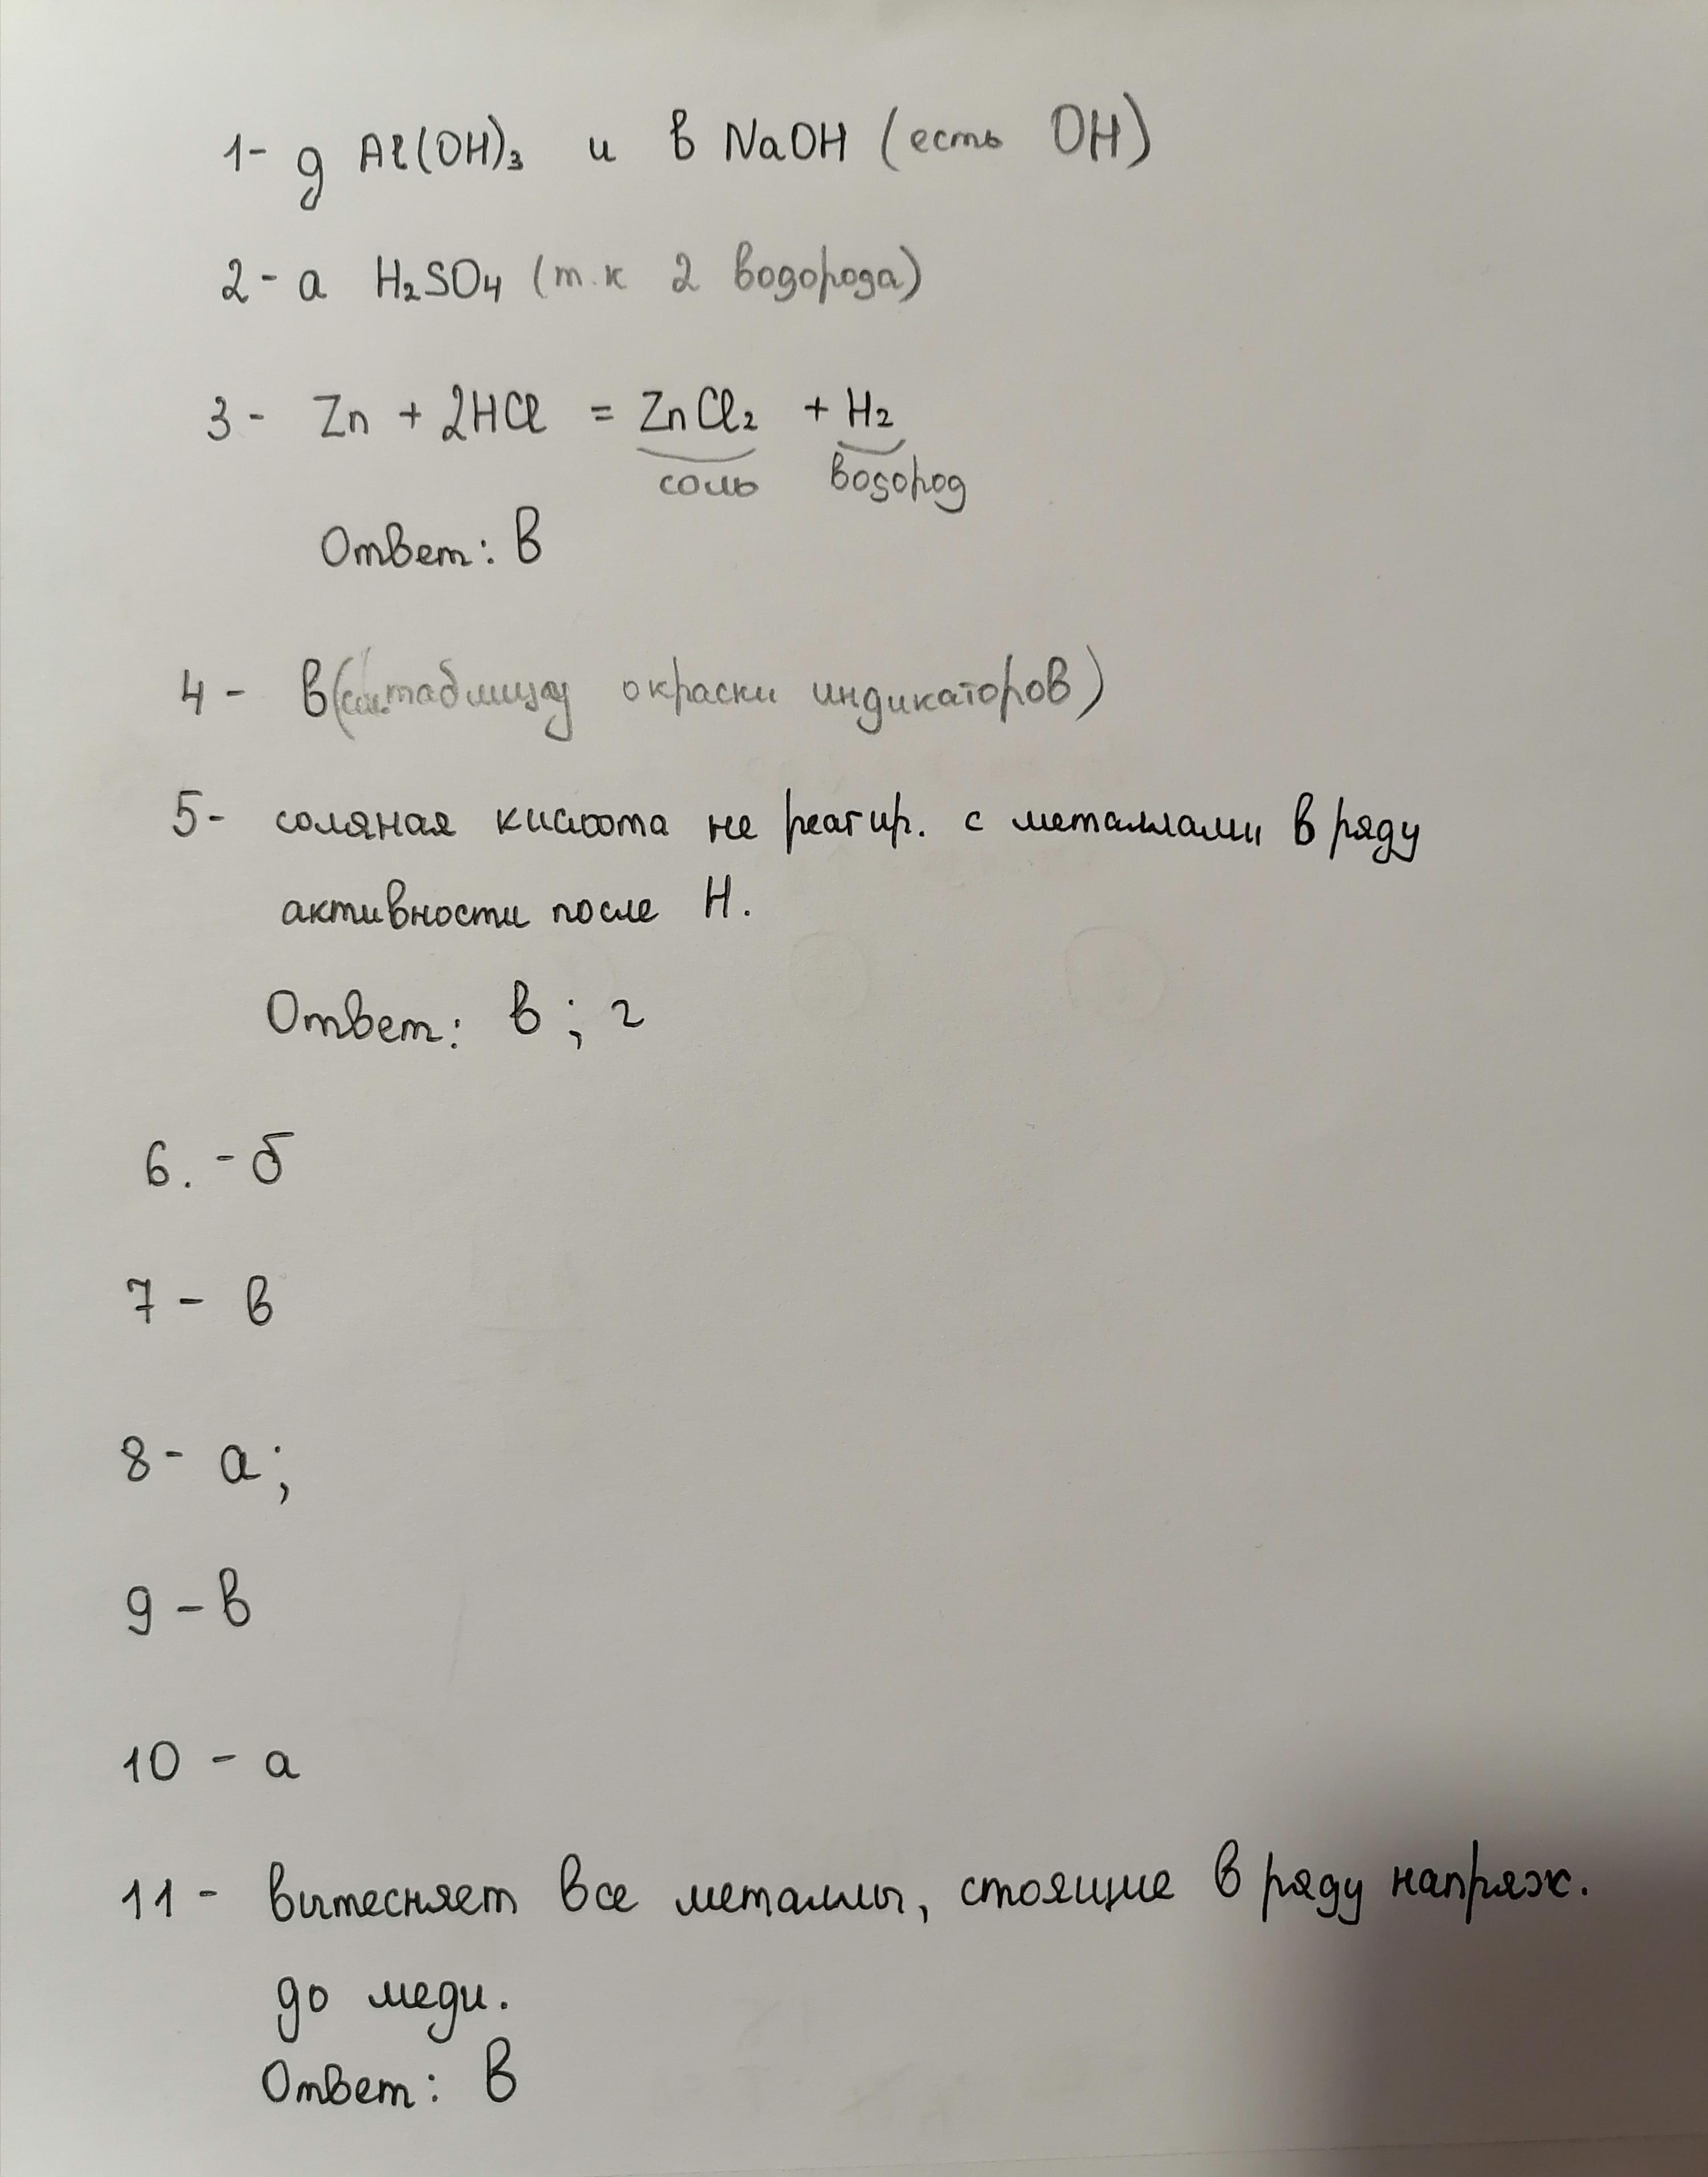 1- д Al(OH)₃ и в NaOH (есть OH)
2- а H₂SO₄ (т.к 2 водорода)
3- Zn + 2HCl = ZnCl₂ + H₂
соль водород
Ответ: В
4- в(см.таблицу окраски индикаторов)
5- соляная кислота не реагир. с металлами в ряду
активности после H.
Ответ: в; г
6. - б
7 - в
8 - а;
9 - в
10 - а
11 - вытесняет все металлы, стоящие в ряду напряж.
до меди.
Ответ: В